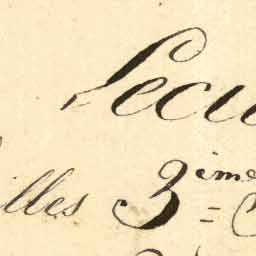 Secu
illes 3ème = C